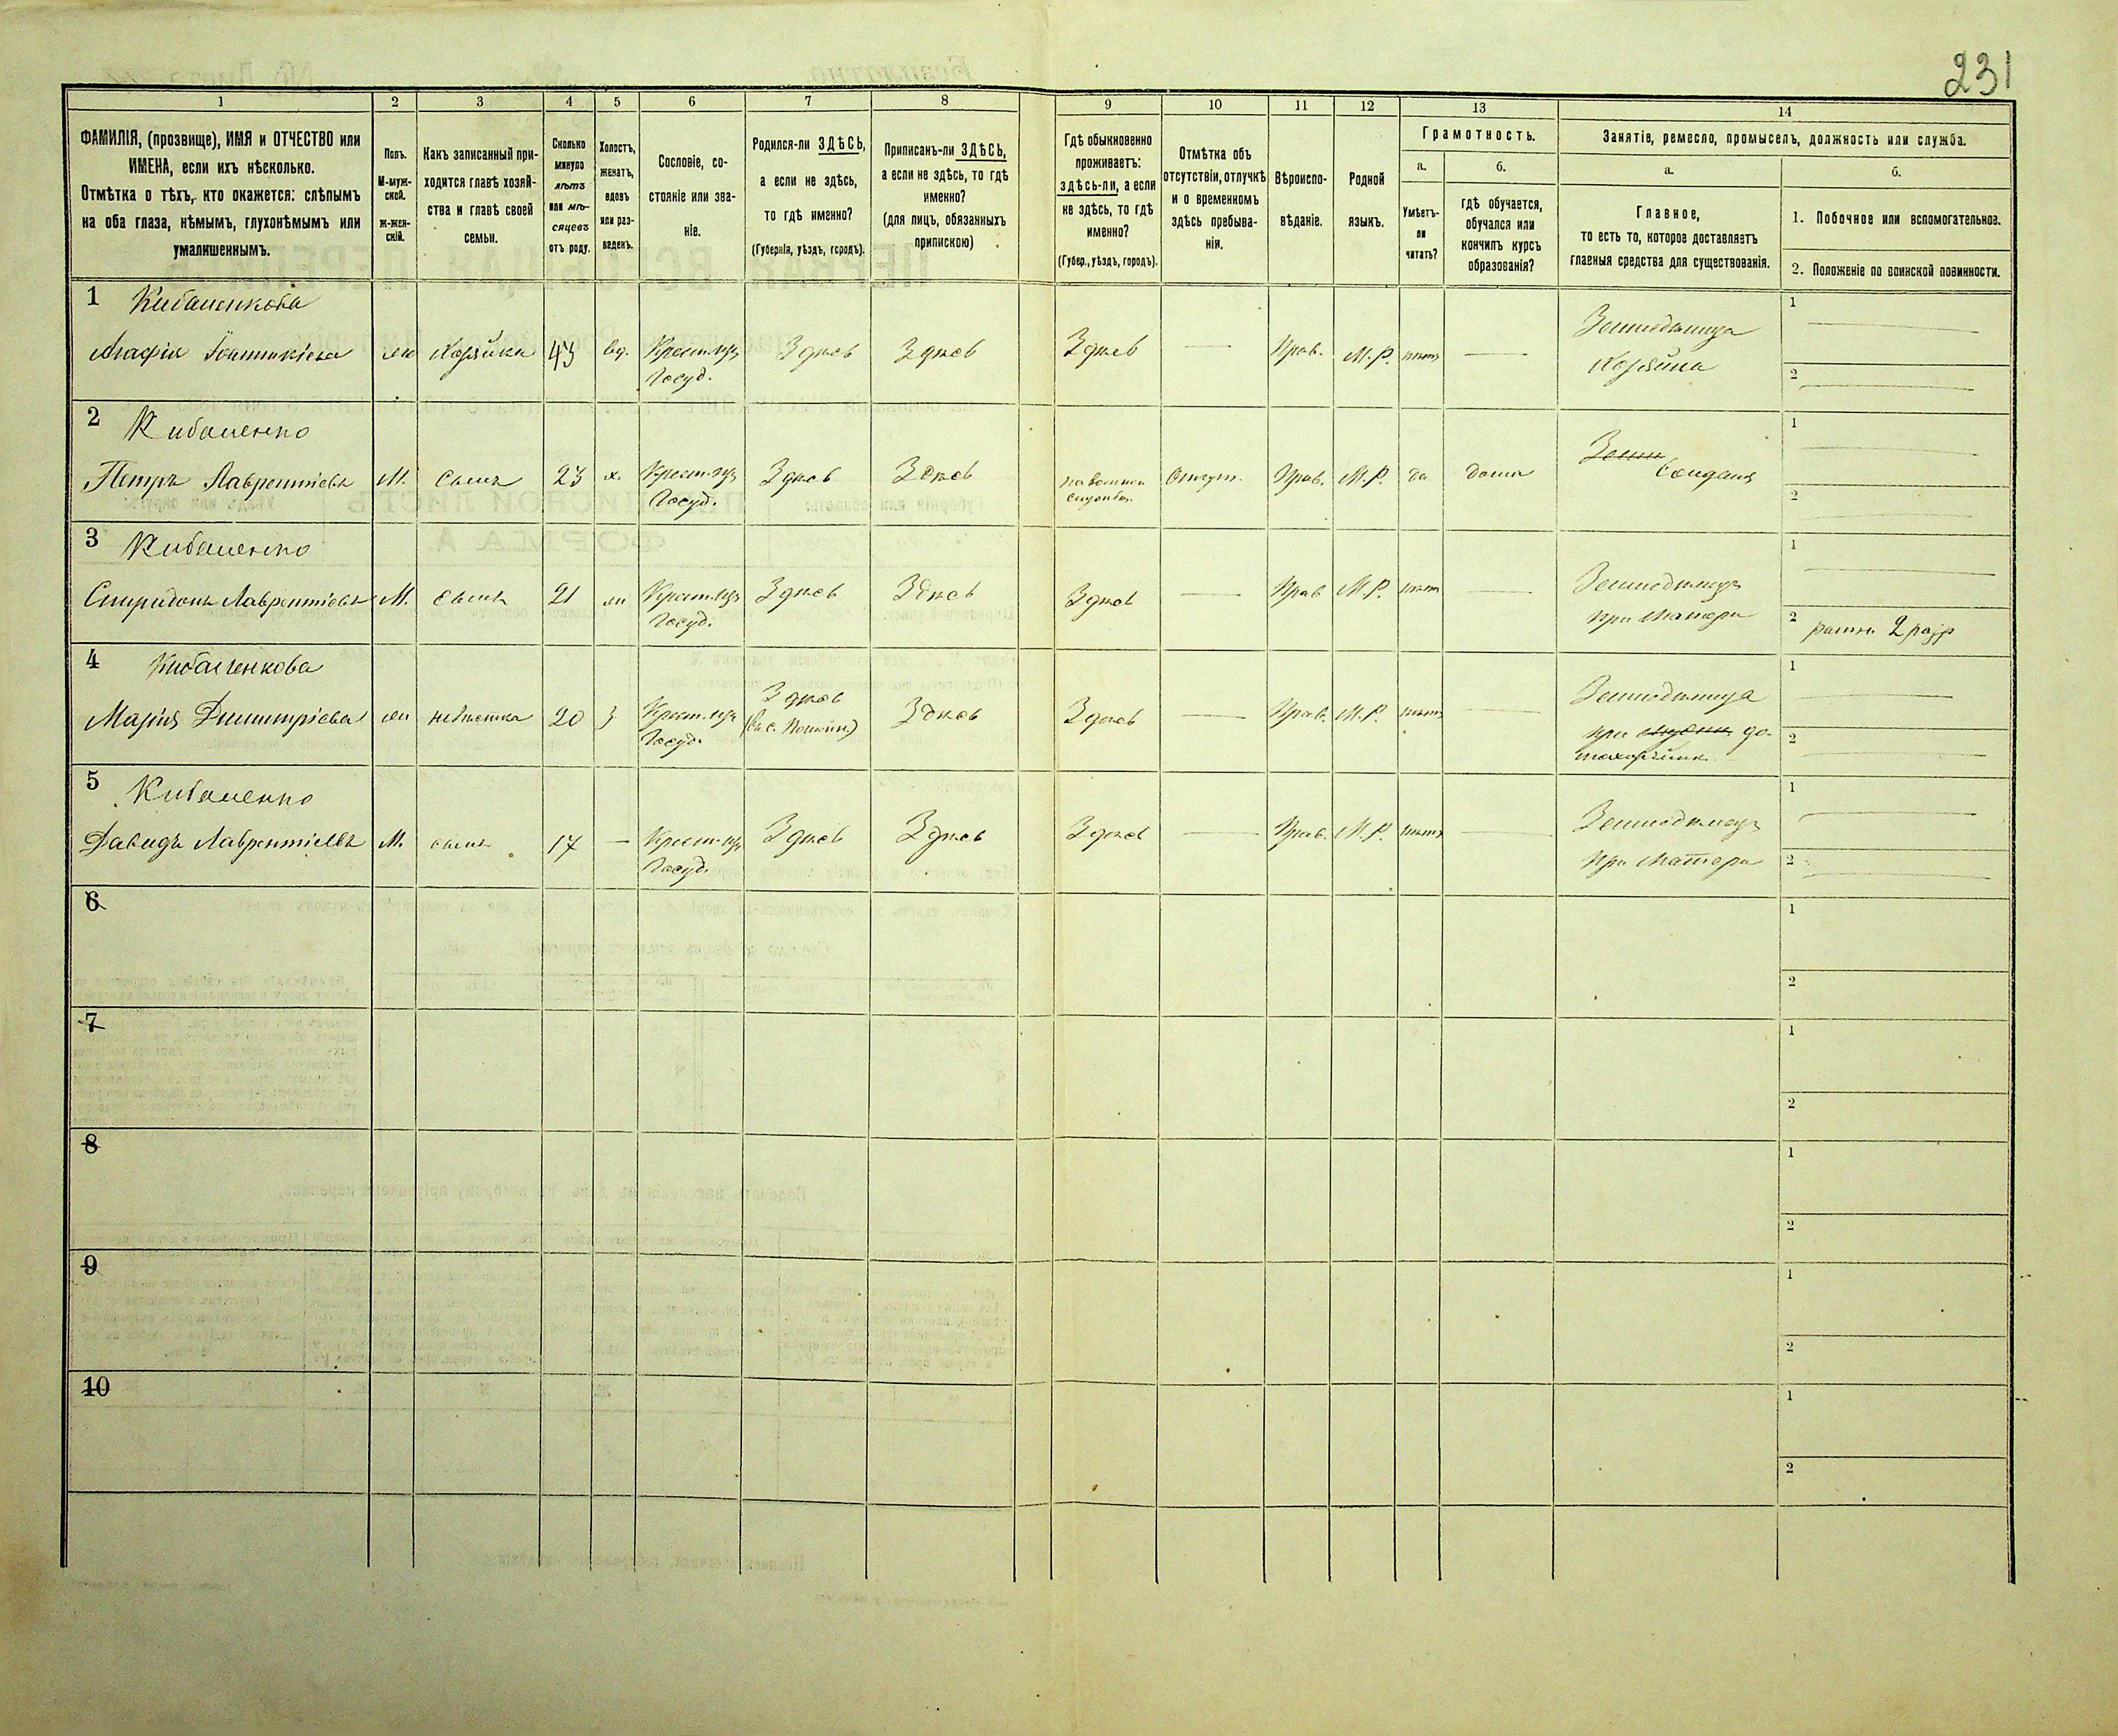 231
1 2 3 4 5 6 7 8 9 10 11 12 13 14
ФАМИЛІЯ, (прозвище), ИМЯ и ОТЧЕСТВО или
ИМЕНА, если ихъ нѣсколько.
Отмѣтка о тѣхъ, кто окажется: слѣпымъ
на оба глаза, нѣмымъ, глухонѣмымъ или
умалишеннымъ.
Полъ.
М-муж-
ской.
ж-жен-
скій.
Какъ записанный при-
ходится главѣ хозяй-
ства и главѣ своей
семьи.
Сколько
минуло
лѣтъ
или мѣ-
сяцевъ
отъ роду.
Холостъ,
женатъ,
вдовъ
или раз-
веденъ.
Сословіе, со-
стояніе или зва-
ніе.
Родился-ли ЗДѢСЬ,
а если не здѣсь,
то гдѣ именно?
(Губернія, уѣздъ, городъ).
Приписанъ-ли ЗДѢСЬ,
а если не здѣсь, то гдѣ
именно?
(для лицъ, обязанныхъ
припискою)
Гдѣ обыкновенно
проживаетъ:
здѣсь-ли, а если
не здѣсь, то гдѣ
именно?
(Губер., уѣздъ, городъ).
Отмѣтка объ
отсутствіи, отлучкѣ
и о временномъ
здѣсь пребыва-
ніи.
Вѣроиспо-
вѣданіе.
Родной
языкъ.
Грамотность.
а.
Умѣетъ-
ли
читать?
б.
гдѣ обучается,
обучался или
кончилъ курсъ
образованія?
Занятіе, ремесло, промыселъ, должность или служба.
а.
Главное,
то есть то, которое доставляетъ
главныя средства для существованія.
б.
1. Побочное или вспомогательное.
2. Положеніе по воинской повинности.
1 Кибаленкова 1
Агафія ж Хозяйка 43 вд. Крест. изъ Здѣсь Здѣсь Здѣсь — Прав. М.Р. нѣтъ — Земледѣлица
Госуд. Хозяйка 2
2 Кибаленко 1
Петръ Лаврентіевъ М. сынъ 23 х. Крест. изъ Здѣсь Здѣсь на военной Отсут. Прав. М.Р. да дома Солдатъ
Госуд. службѣ 2
3 Кибаленко 1
Спиридонъ Лаврентіевъ М. сынъ 21 ж Крест. изъ Здѣсь Здѣсь Здѣсь — Прав М.Р. нѣтъ — Земледѣлецъ
Госуд. при матери 2 ратн. 2 разр
4 Кибаленкова 1
Марія Димитріева ж невѣстка 20 з Крест. изъ Здѣсь Здѣсь Здѣсь — Прав. М.Р. нѣтъ — Земледѣлица
Госуд. при до-
мохозяйкѣ 2
5 Кибаленко 1
Давидъ Лаврентіевъ М. сынъ 17 — Крест. изъ Здѣсь Здѣсь Здѣсь — Прав. М.Р. нѣтъ — Земледѣлецъ
Госуд. при матери 2
6 1
2
7 1
2
8 1
2
9 1
2
10 1
2